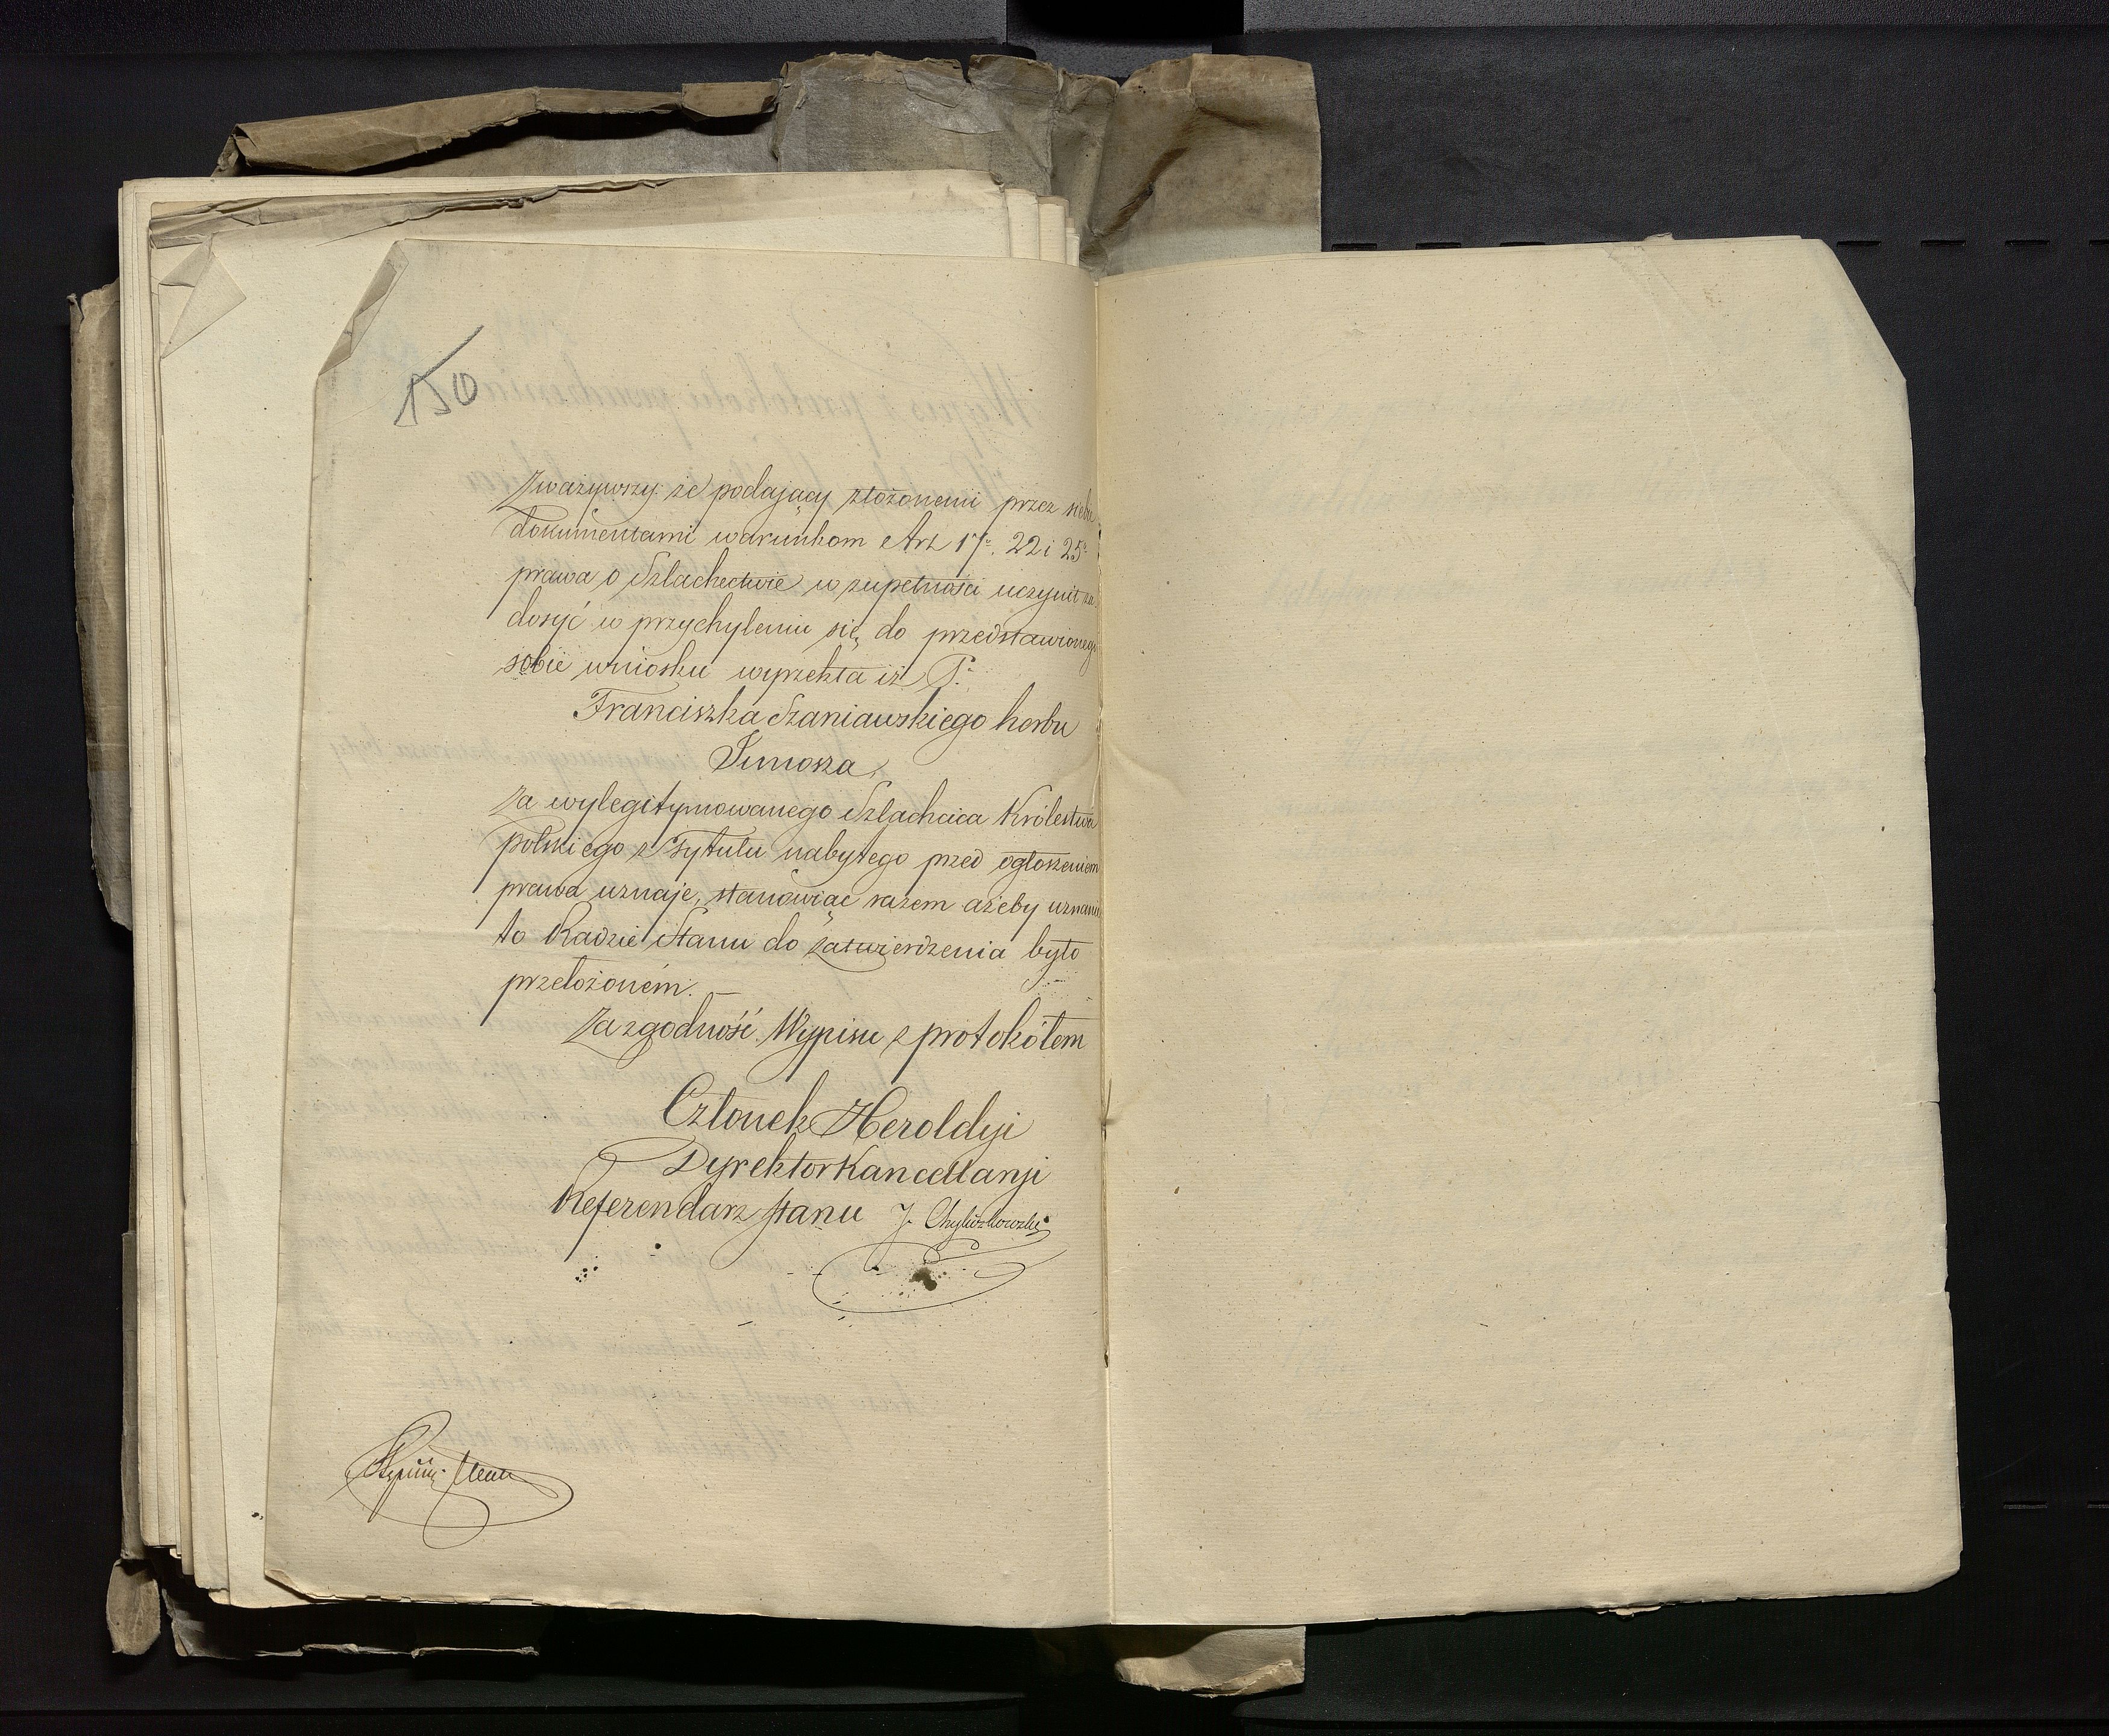 150
Zważywszy że podający złożonemi przez siebie
dokumentami warunkom Art 17. 22 i 25
prawa o Szlachectwie w zupełności uczynił za
dosyć w przychyleniu się do przedstawionego
sobie wniosku wyrzekła iż P.
Franciszka Szaniawskiego herbu
Junosza
za wylegitymowanego Szlachcica Królestwa
polskiego z Tytułu nabytego przed ogłoszeniem
prawa uznaje, stanowiąc razem ażeby uznanie
to Radzie Stanu do zatwierdzenia było
przełożoném. —
Za zgodność Wypisu z protokółem
Członek Heroldyi
Dyrektor Kancellaryi
Referendarz Stanu J. Chyliczkowski